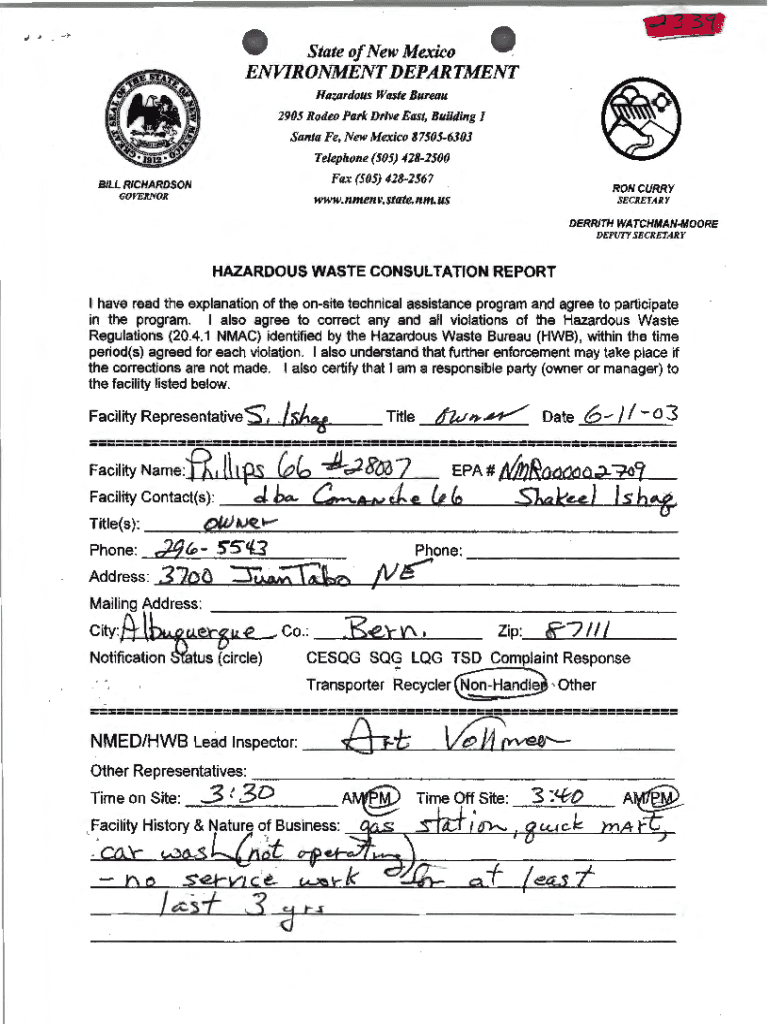 2339
State of New Mexico
ENVIRONMENT DEPARTMENT
Hazardous Waste Bureau
2905 Rodeo Park Drive East, Building 1
Santa Fe, New Mexico 87505-6303
Telephone (505) 428-2500
Fax (505) 428-2567
www.nmenv.state.nm.us
GREAT SEAL OF THE STATE OF NEW MEXICO
1912
BILL RICHARDSON
GOVERNOR
RON CURRY
SECRETARY
DERRITH WATCHMAN-MOORE
DEPUTY SECRETARY
HAZARDOUS WASTE CONSULTATION REPORT
I have read the explanation of the on-site technical assistance program and agree to participate
in the program. I also agree to correct any and all violations of the Hazardous Waste
Regulations (20.4.1 NMAC) identified by the Hazardous Waste Bureau (HWB), within the time
period(s) agreed for each violation. I also understand that further enforcement may take place if
the corrections are not made. I also certify that I am a responsible party (owner or manager) to
the facility listed below.
Facility Representative S. Ishaq Title Owner Date 6-11-03
Facility Name: Phillips 66 #28007 EPA # NMR000002709
Facility Contact(s): dba Comanche 66 Shakeel Ishaq
Title(s): owner
Phone: 296-5543 Phone:
Address: 3700 Juan Tabo NE
Mailing Address:
City: Albuquerque Co.: Bern. Zip: 87111
Notification Status (circle) CESQG SQG LQG TSD Complaint Response
Transporter Recycler Non-Handler Other
NMED/HWB Lead Inspector: Art Vollmer
Other Representatives:
Time on Site: 3:30 AM/PM Time Off Site: 3:40 AM/PM
Facility History & Nature of Business: gas station, quick mart,
car wash (not operating)
- no service work for at least
last 3 yrs